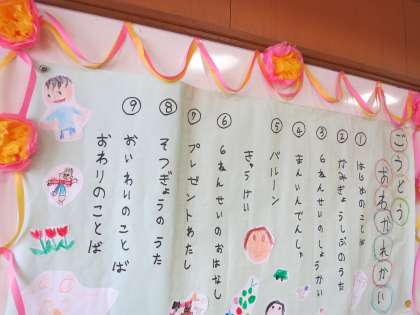 ごうとう
おわかれかい
① はじめのことば
② かみぎょうしぶのうた
③ 6ねんせいのしょうかい
④ まんいんでんしゃ
⑤ バルーン
きゅうけい
⑥ 6ねんせいのおはなし
⑦ プレゼントわたし
⑧ そつぎょうのうた
⑨ おいわいのことば
おわりのことば